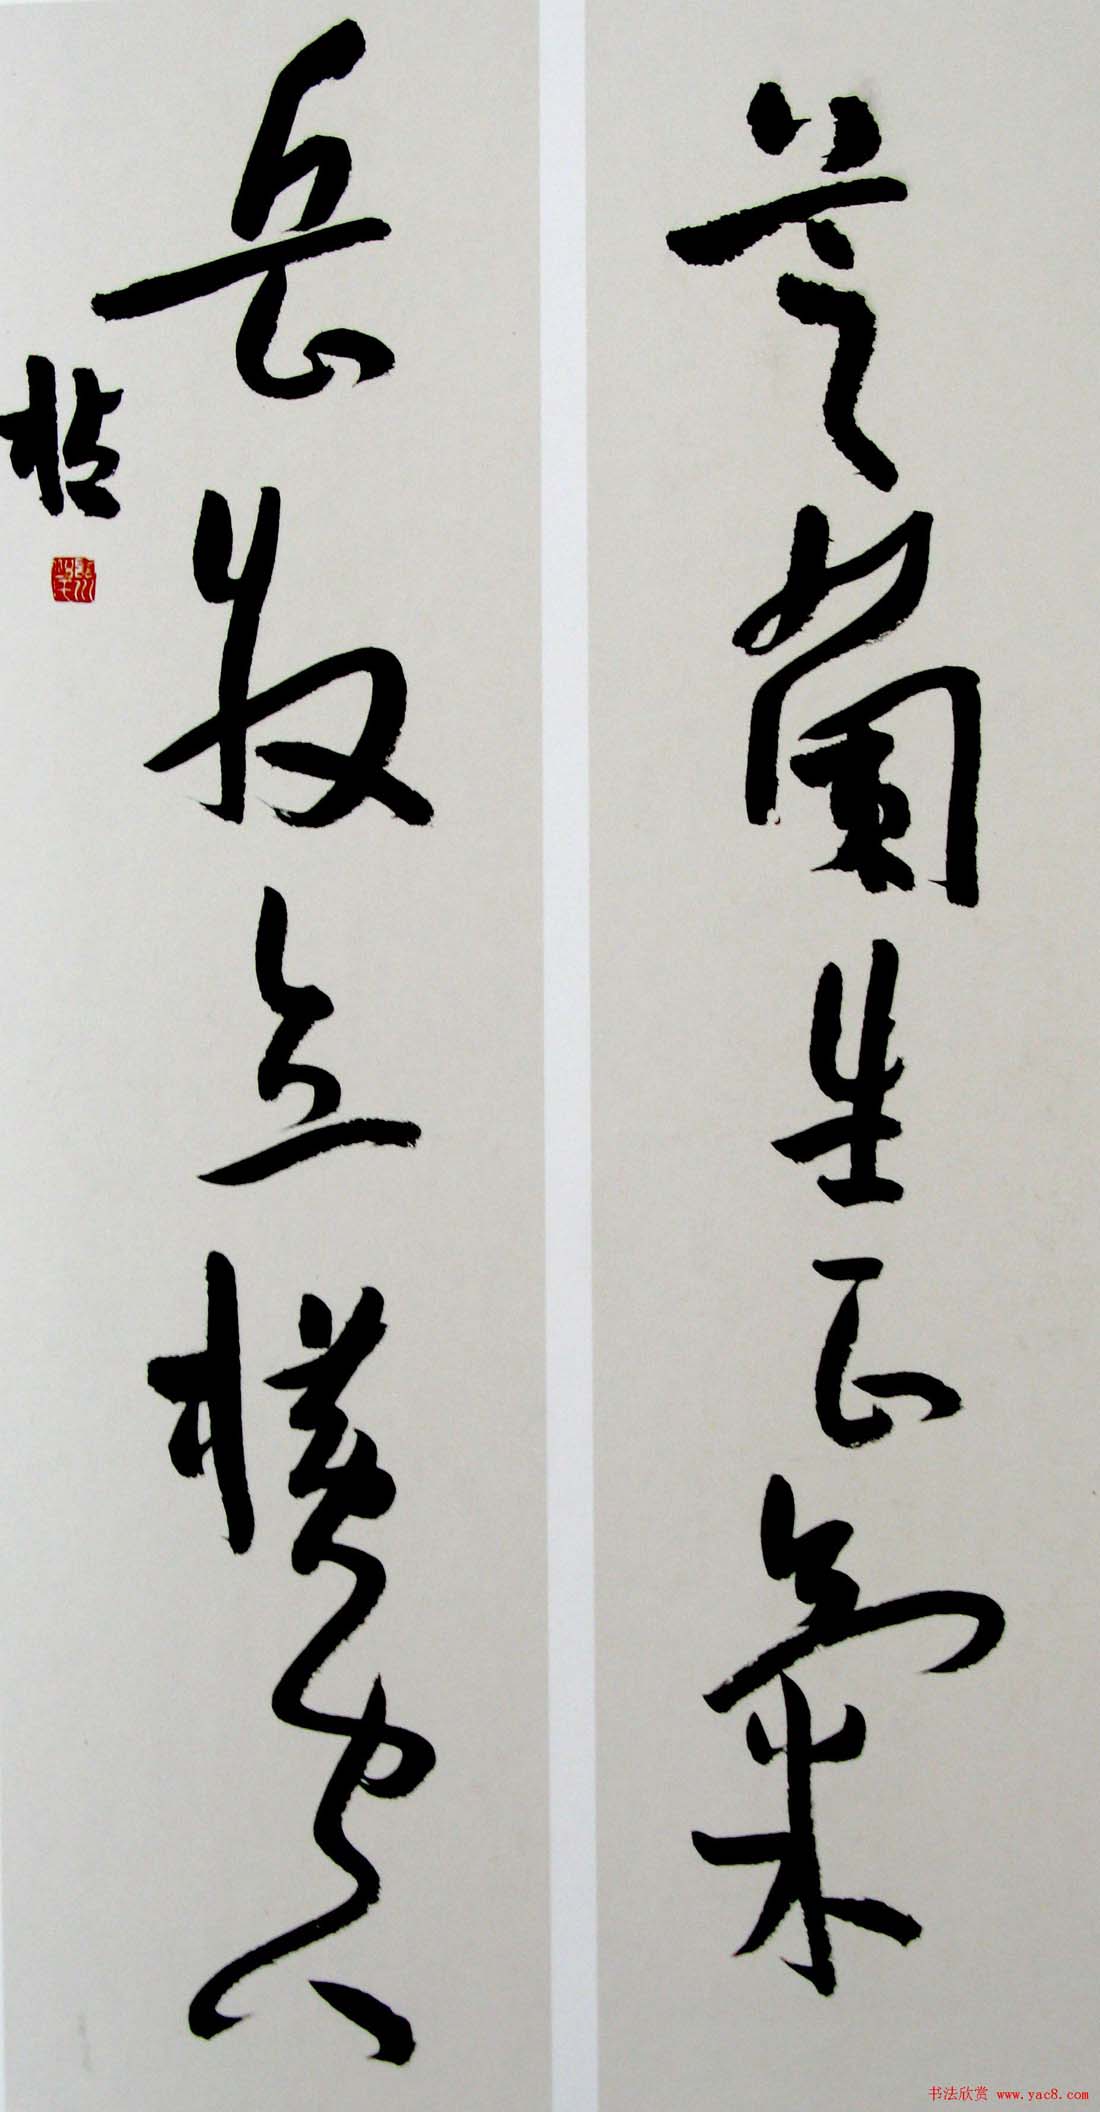 芝蘭生正氣
岳牧立横
书法欣赏 www.yac8.com